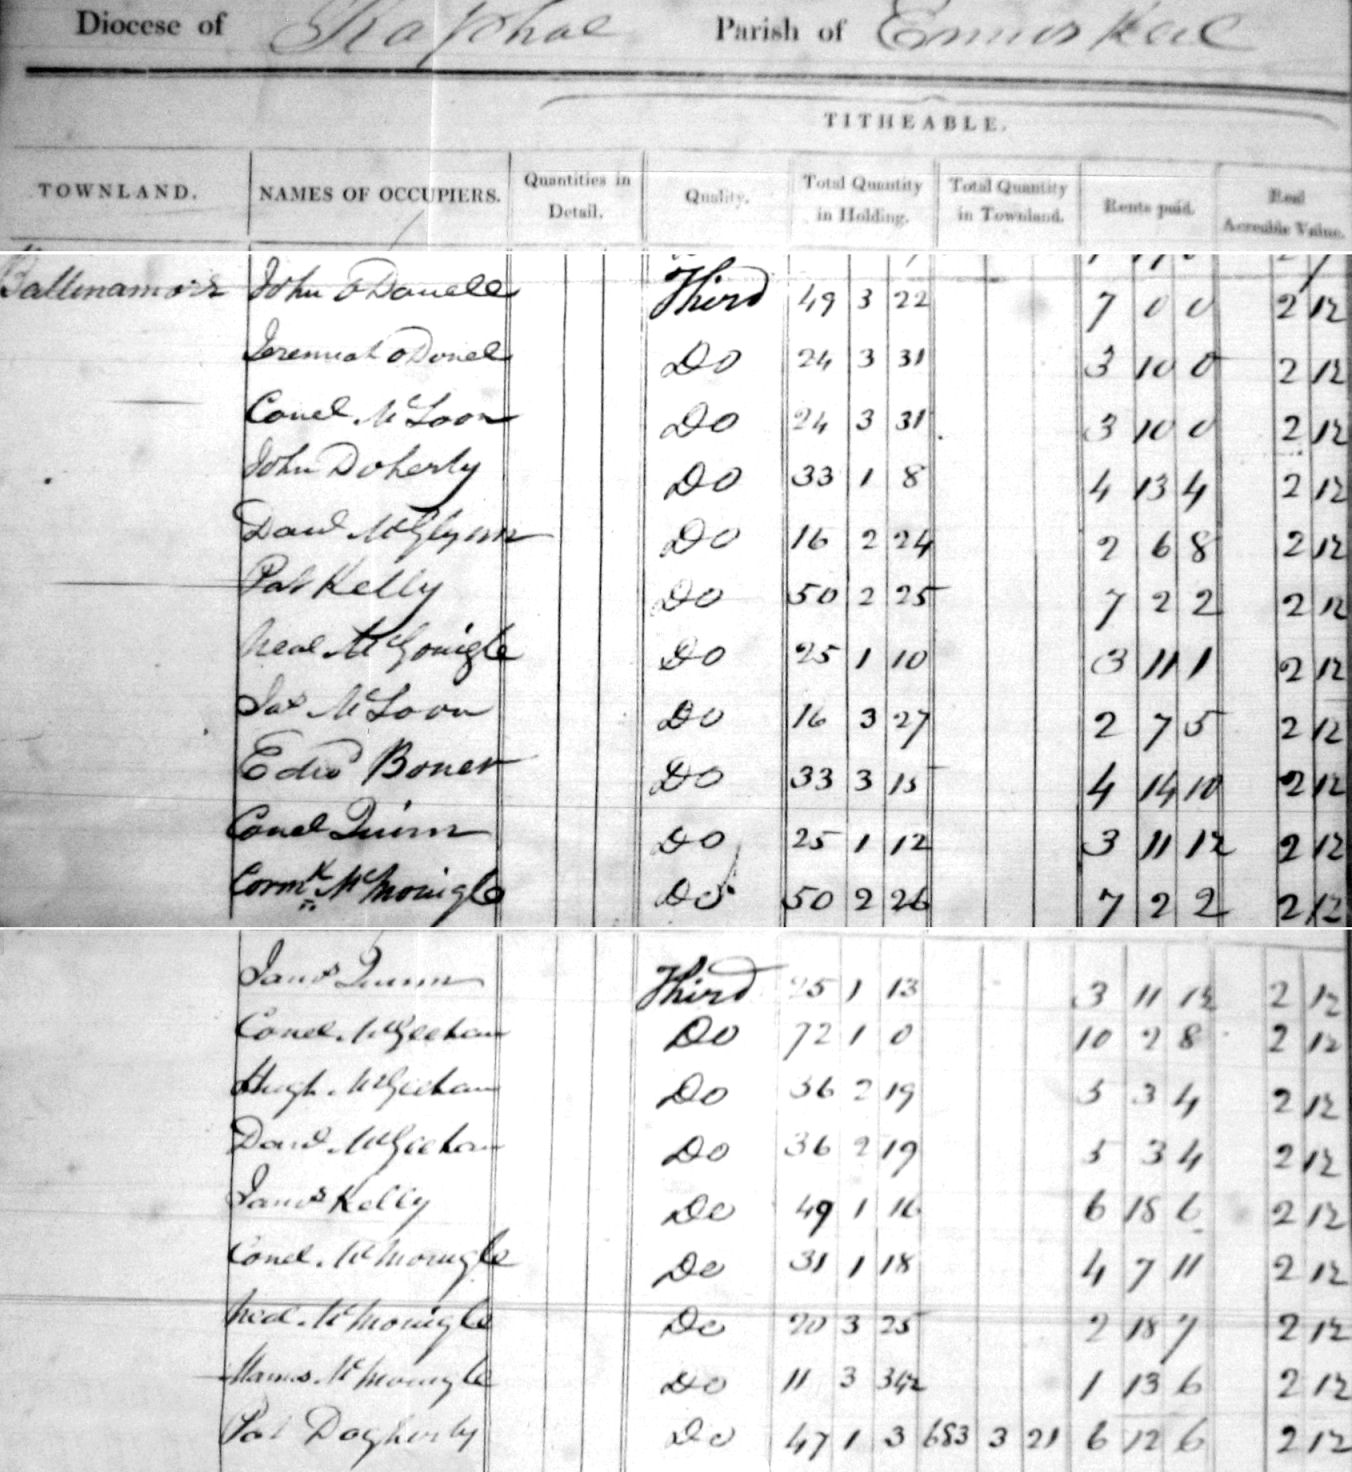 Diocese of Raphoe Parish of Enniskeel
TITHEABLE.
TOWNLAND. NAMES OF OCCUPIERS. Quantities in Detail. Quality. Total Quantity in Holding. Total Quantity in Townland. Rents paid. Real Acreable Value.
Ballinamore John O'Donell Third 49 3 22 7 0 0 2 1½
Jeremiah O'Donel Do 24 3 31 3 10 0 2 1½
Conel McLoon Do 24 3 31 3 10 0 2 1½
John Doherty Do 33 1 8 4 13 4 2 1½
Danl McGlynn Do 16 2 24 2 6 8 2 1½
Pat Kelly Do 50 2 25 7 2 2 2 1½
Neal McGonigle Do 25 1 10 3 11 1 2 1½
Jas McLoon Do 16 3 27 2 7 5 2 1½
Edwd Boner Do 33 3 15 4 14 10 2 1½
Conel Quinn Do 25 1 12 3 11 1½ 2 1½
Cormk McMonigle Do 50 2 26 7 2 2 2 1½
James Quinn Third 25 1 13 3 11 1½ 2 1½
Conel McGeehan Do 72 1 0 10 2 8 2 1½
Hugh McGeehan Do 36 2 19 5 3 4 2 1½
Danl McGeehan Do 36 2 19 5 3 4 2 1½
James Kelly Do 49 1 16 6 18 6 2 1½
Conel McMonigle Do 31 1 18 4 7 11 2 1½
Neal McMonigle Do 20 3 25 2 18 7 2 1½
Manus McMonigle Do 11 3 34½ 1 13 6 2 1½
Pat Dogherty Do 47 1 3 683 3 21 6 12 6 2 1½